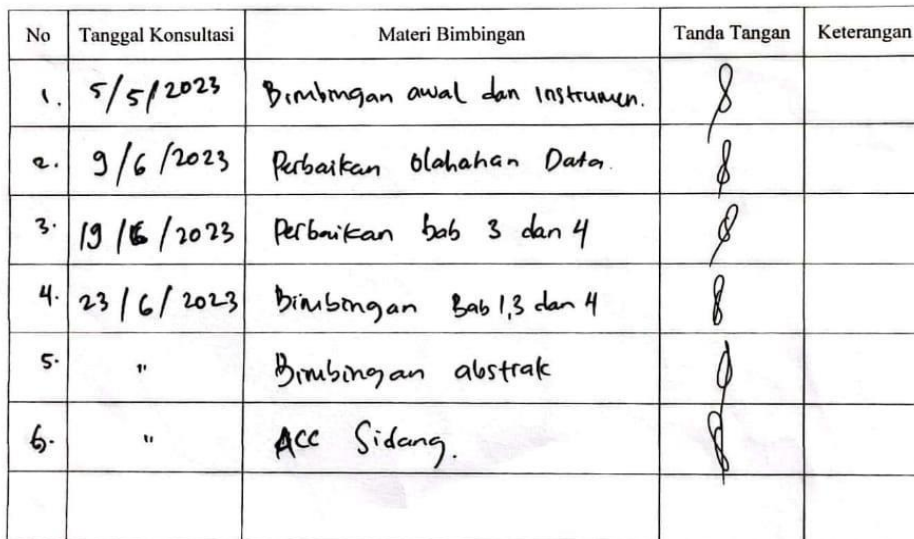 No Tanggal Konsultasi Materi Bimbingan Tanda Tangan Keterangan
1. 5/5/2023 Bimbingan awal dan instrumen.
2. 9/6/2023 Perbaikan Olahahan Data.
3. 19/6/2023 Perbaikan bab 3 dan 4
4. 23/6/2023 Bimbingan Bab 1,3 dan 4
5. " Bimbingan abstrak
6. " ACC Sidang.